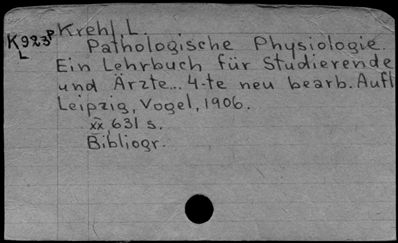 K923p Krehl, L.
L Pathologische Physiologie.
Ein Lehrbuch für Studierende
und Ärzte... 4-te neu bearb. Aufl
Leipzig, Vogel, 1906.
xx, 631 s.
Bibliogr.